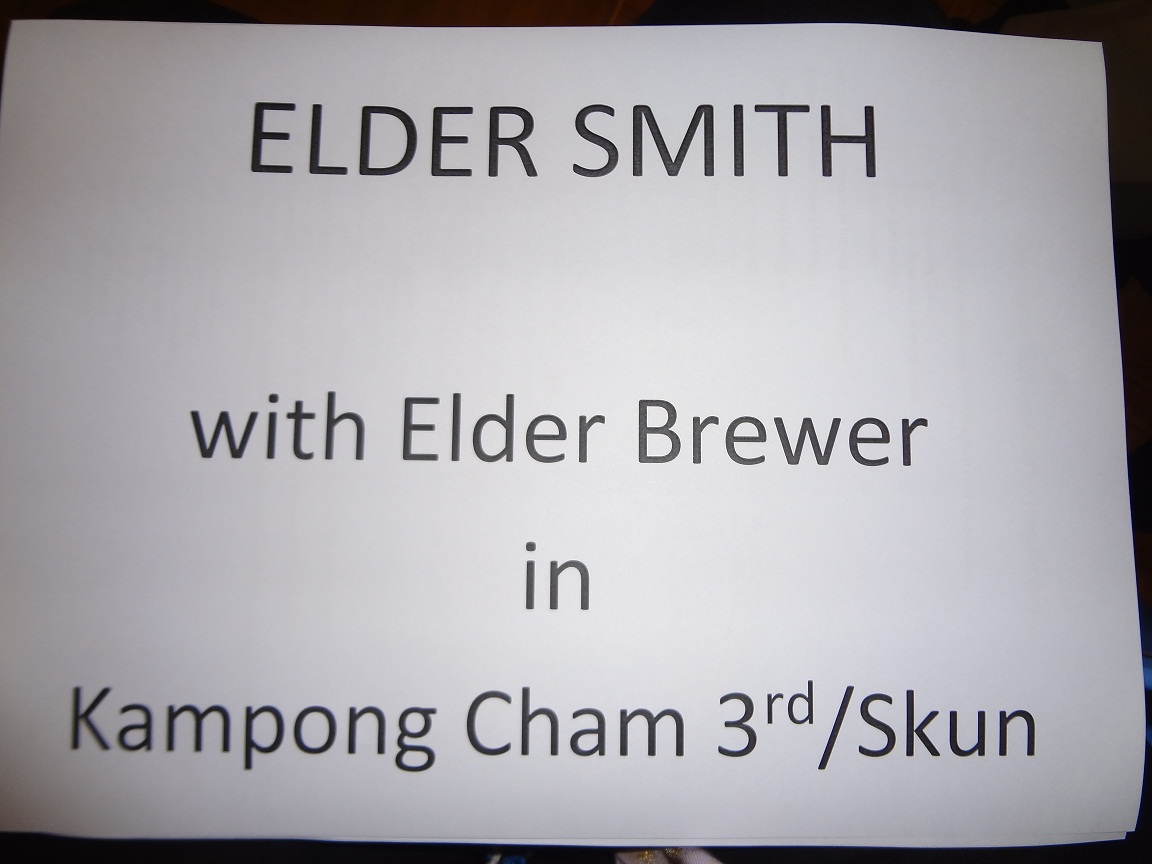 ELDER SMITH
with Elder Brewer
in
Kampong Cham 3rd/Skun